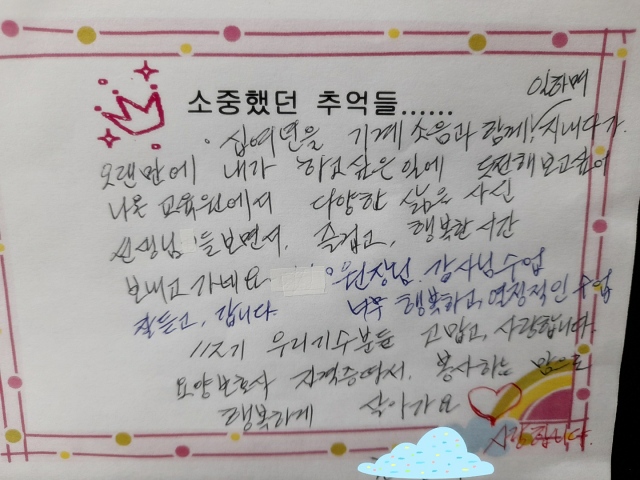 소중했던 추억들......
일하며
십여년을 기계 소음과 함께! 지내다가
오랜만에 내가 하고싶은 일에 도전해보고싶어
나온 교육원에서 다양한 삶을 사신
선생님들보면서. 즐겁고, 행복한 시간
보내고 가네요 원장님. 강사님 수업
잘듣고, 갑니다. 너무 행복하고, 열정적인 수업
11기 우리기수분들 고맙고, 사랑합니다.
요양보호사 자격증따서. 봉사하는 맘으로
행복하게 살아가요
사랑합니다.